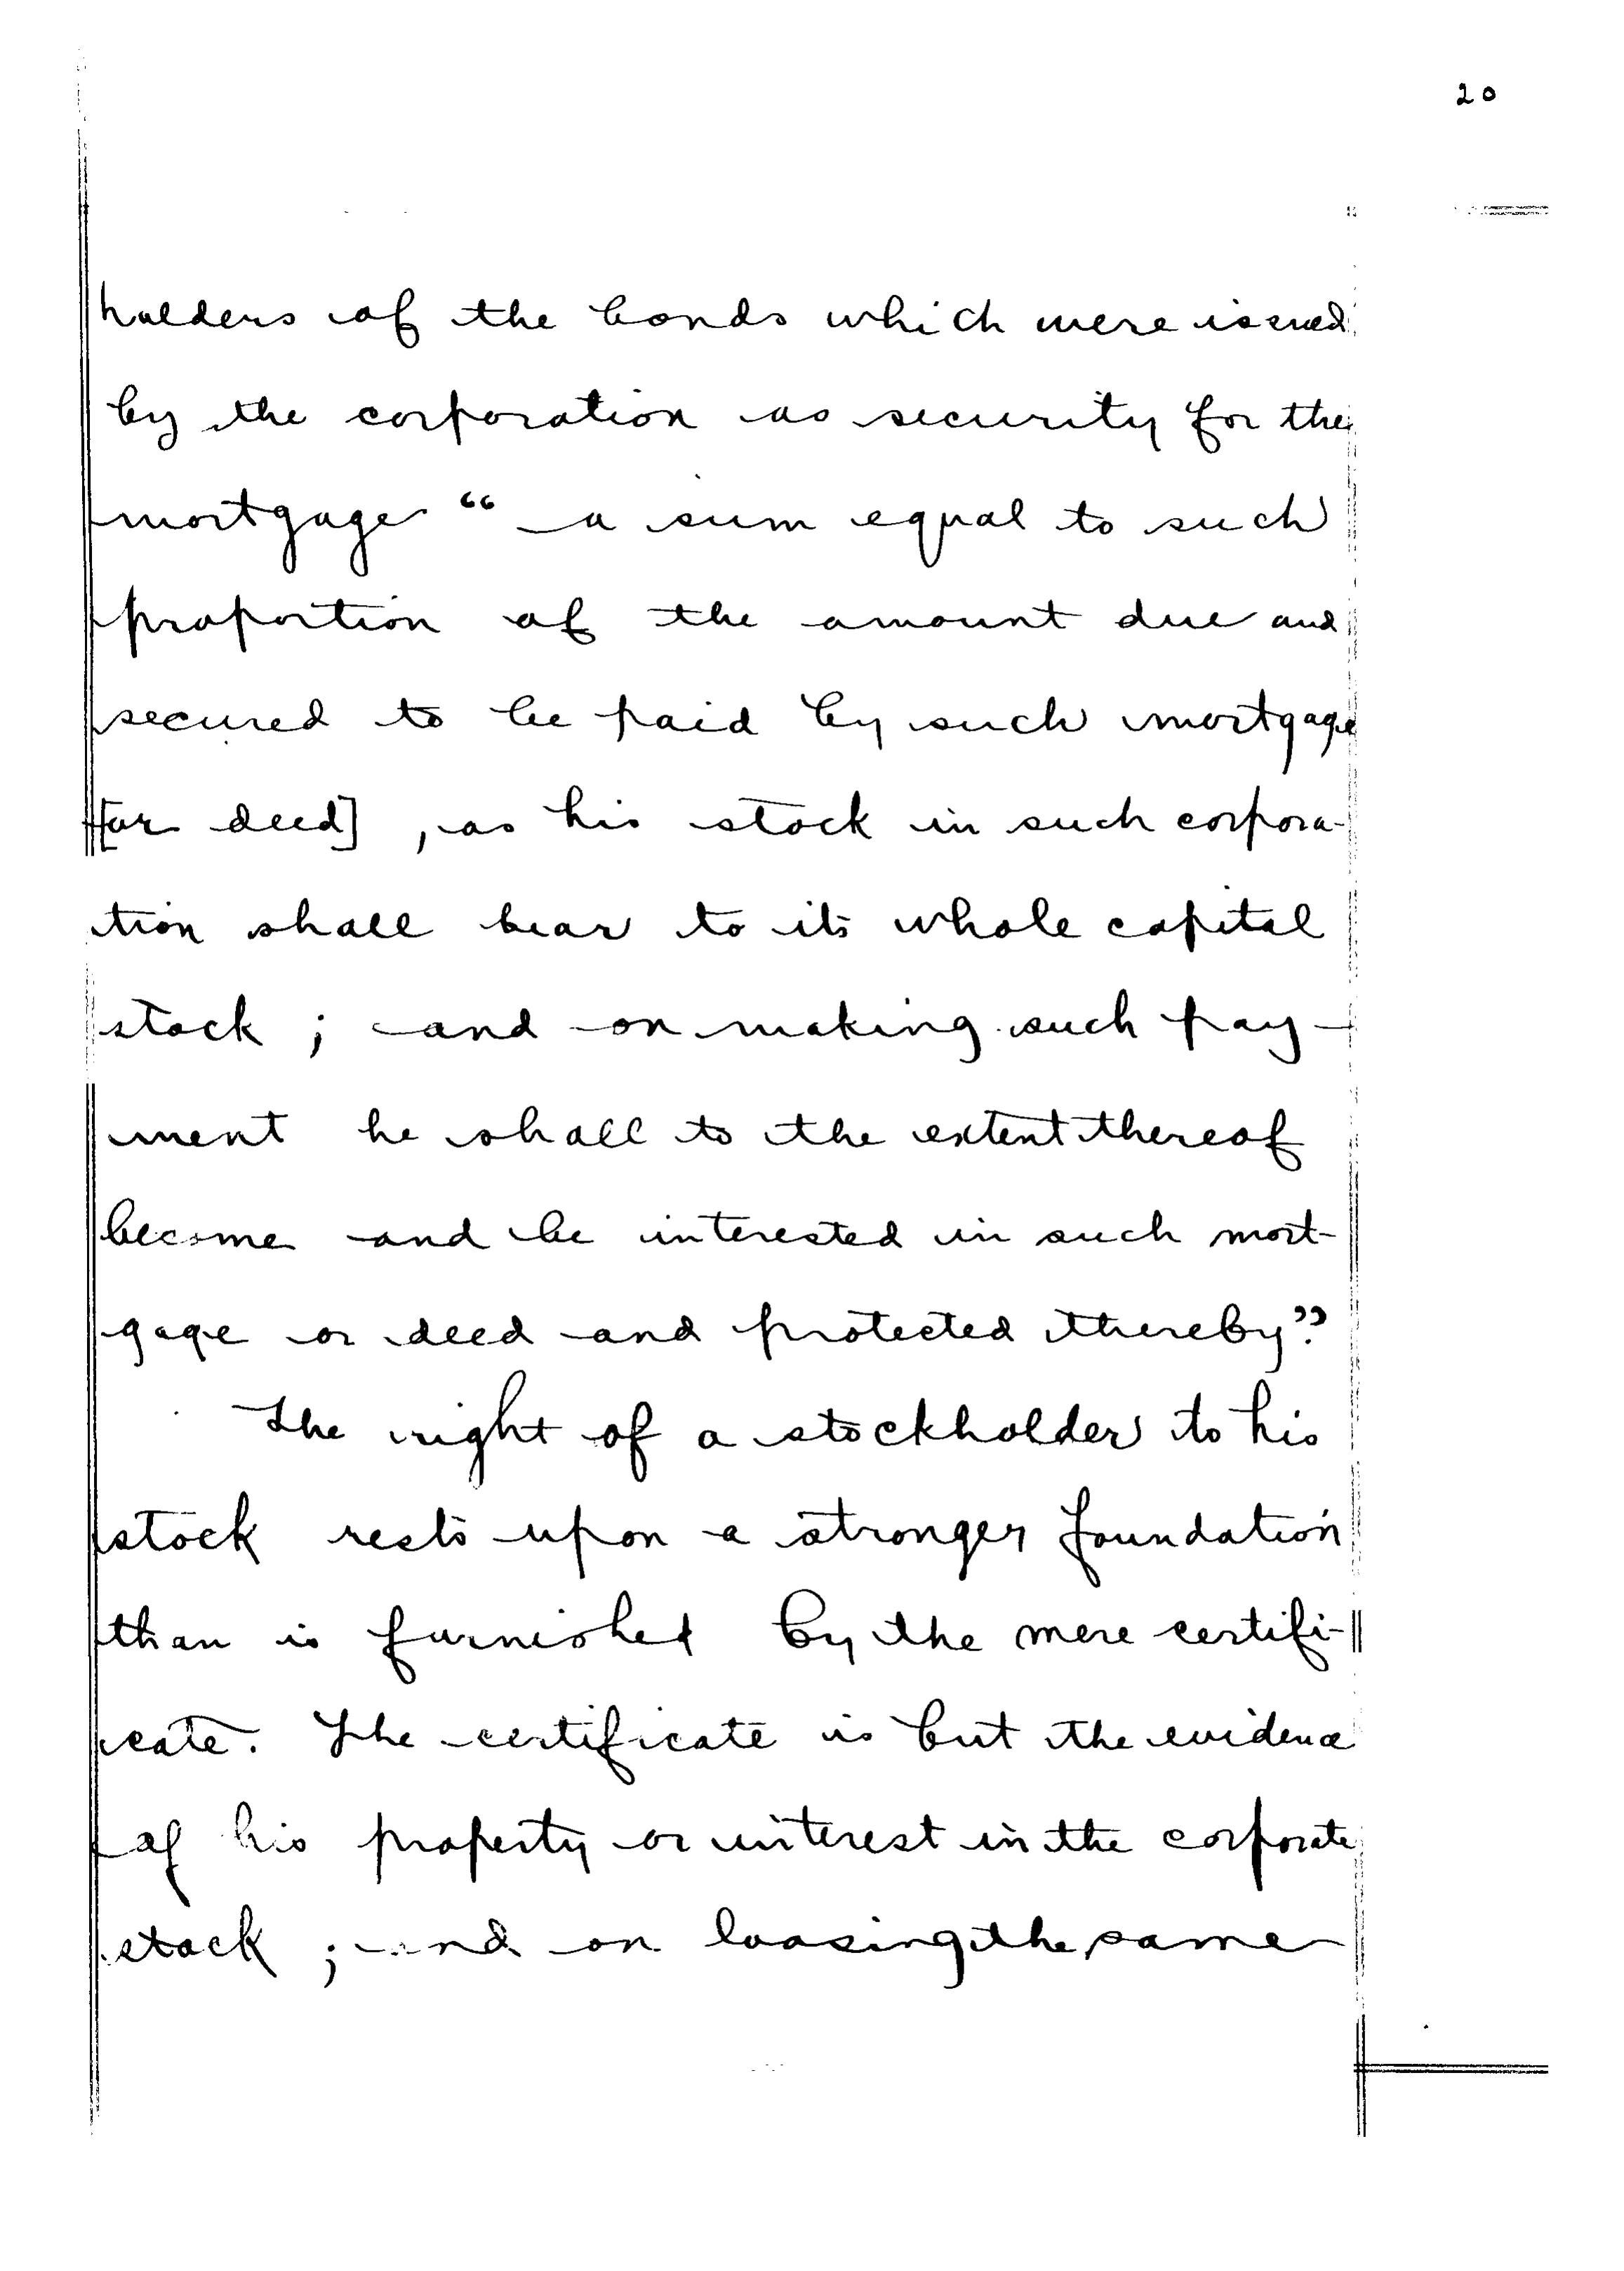 20
holders of the bonds which were issued
by the corporation as security for the
mortgage “ a sum equal to such
proportion of the amount due and
secured to be paid by such mortgage
[or deed] , as his stock in such corpora-
tion shall bear to its whole capital
stock ; and on making such pay-
ment he shall to the extent thereof
become and be interested in such mort-
gage or deed and protected thereby”.
The right of a stockholder to his
stock rests upon a stronger foundation
than is furnished by the mere certifi-
cate. The certificate is but the evidence
of his property or interest in the corporate
stock ; and on loosing the same